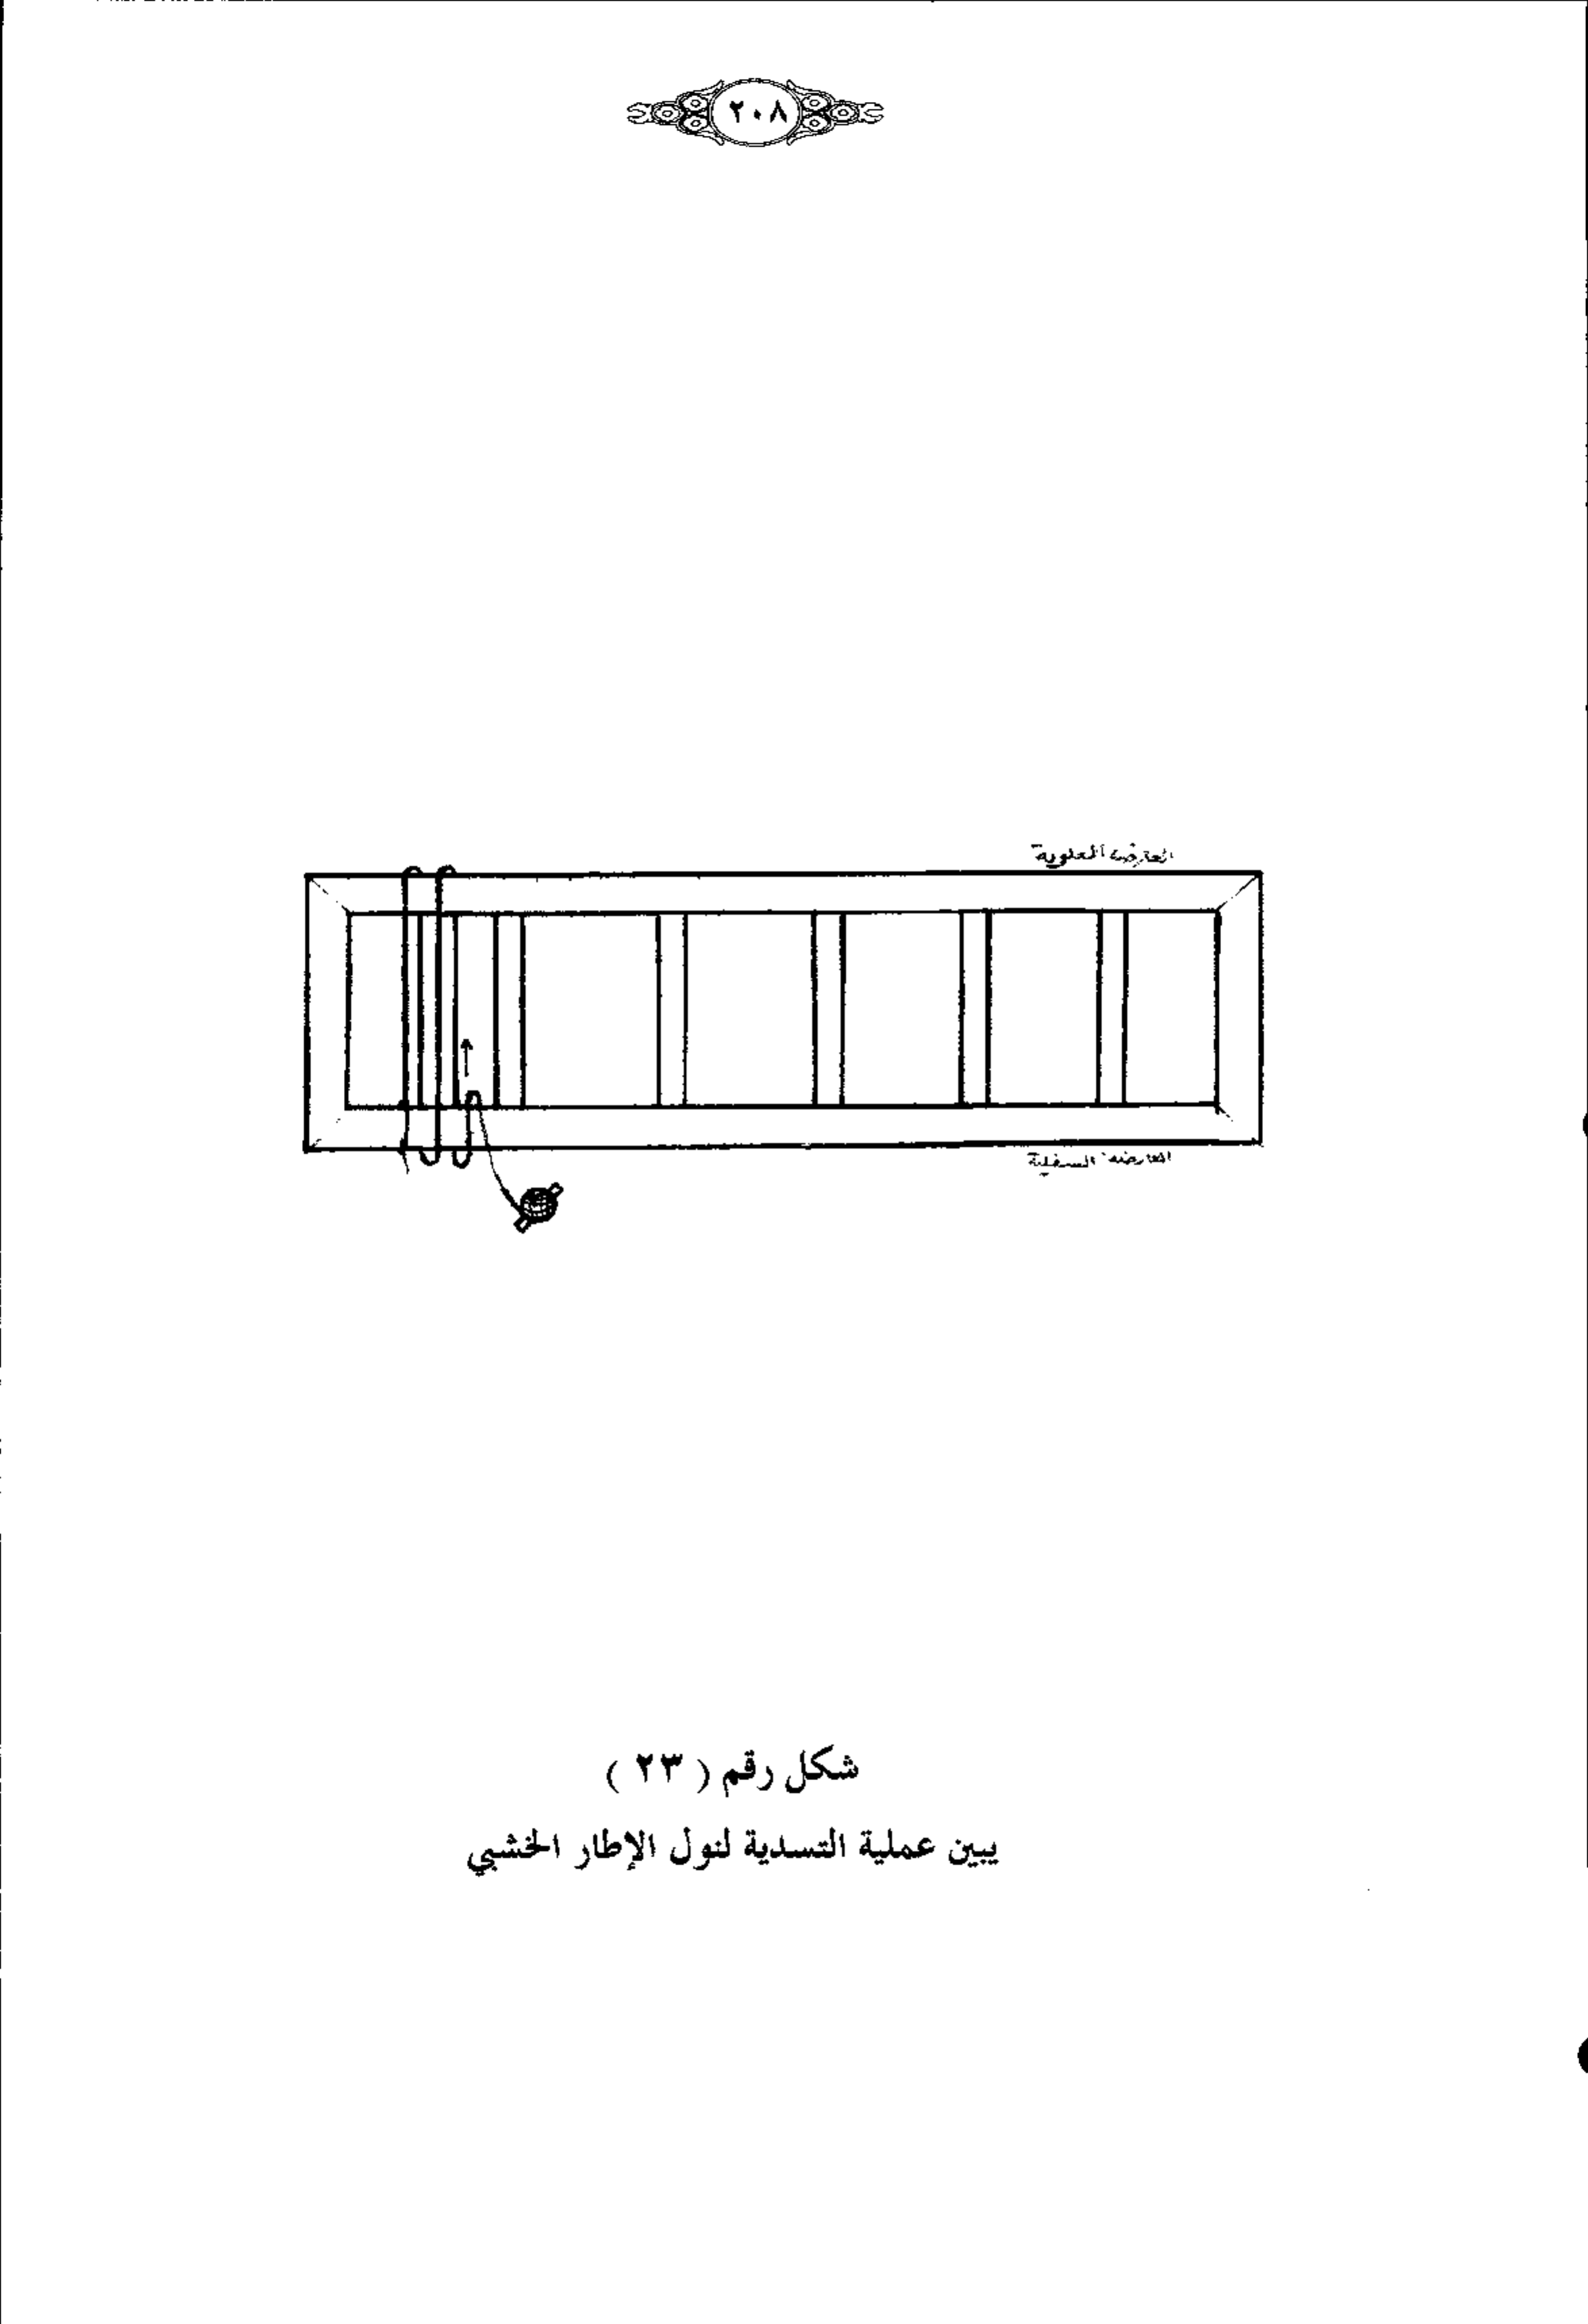 ٢٠٨
العارضة العلوية
العارضة السفلية
شكل رقم ( ٢٣ )
يبين عملية التسدية لنول الإطار الخشبي